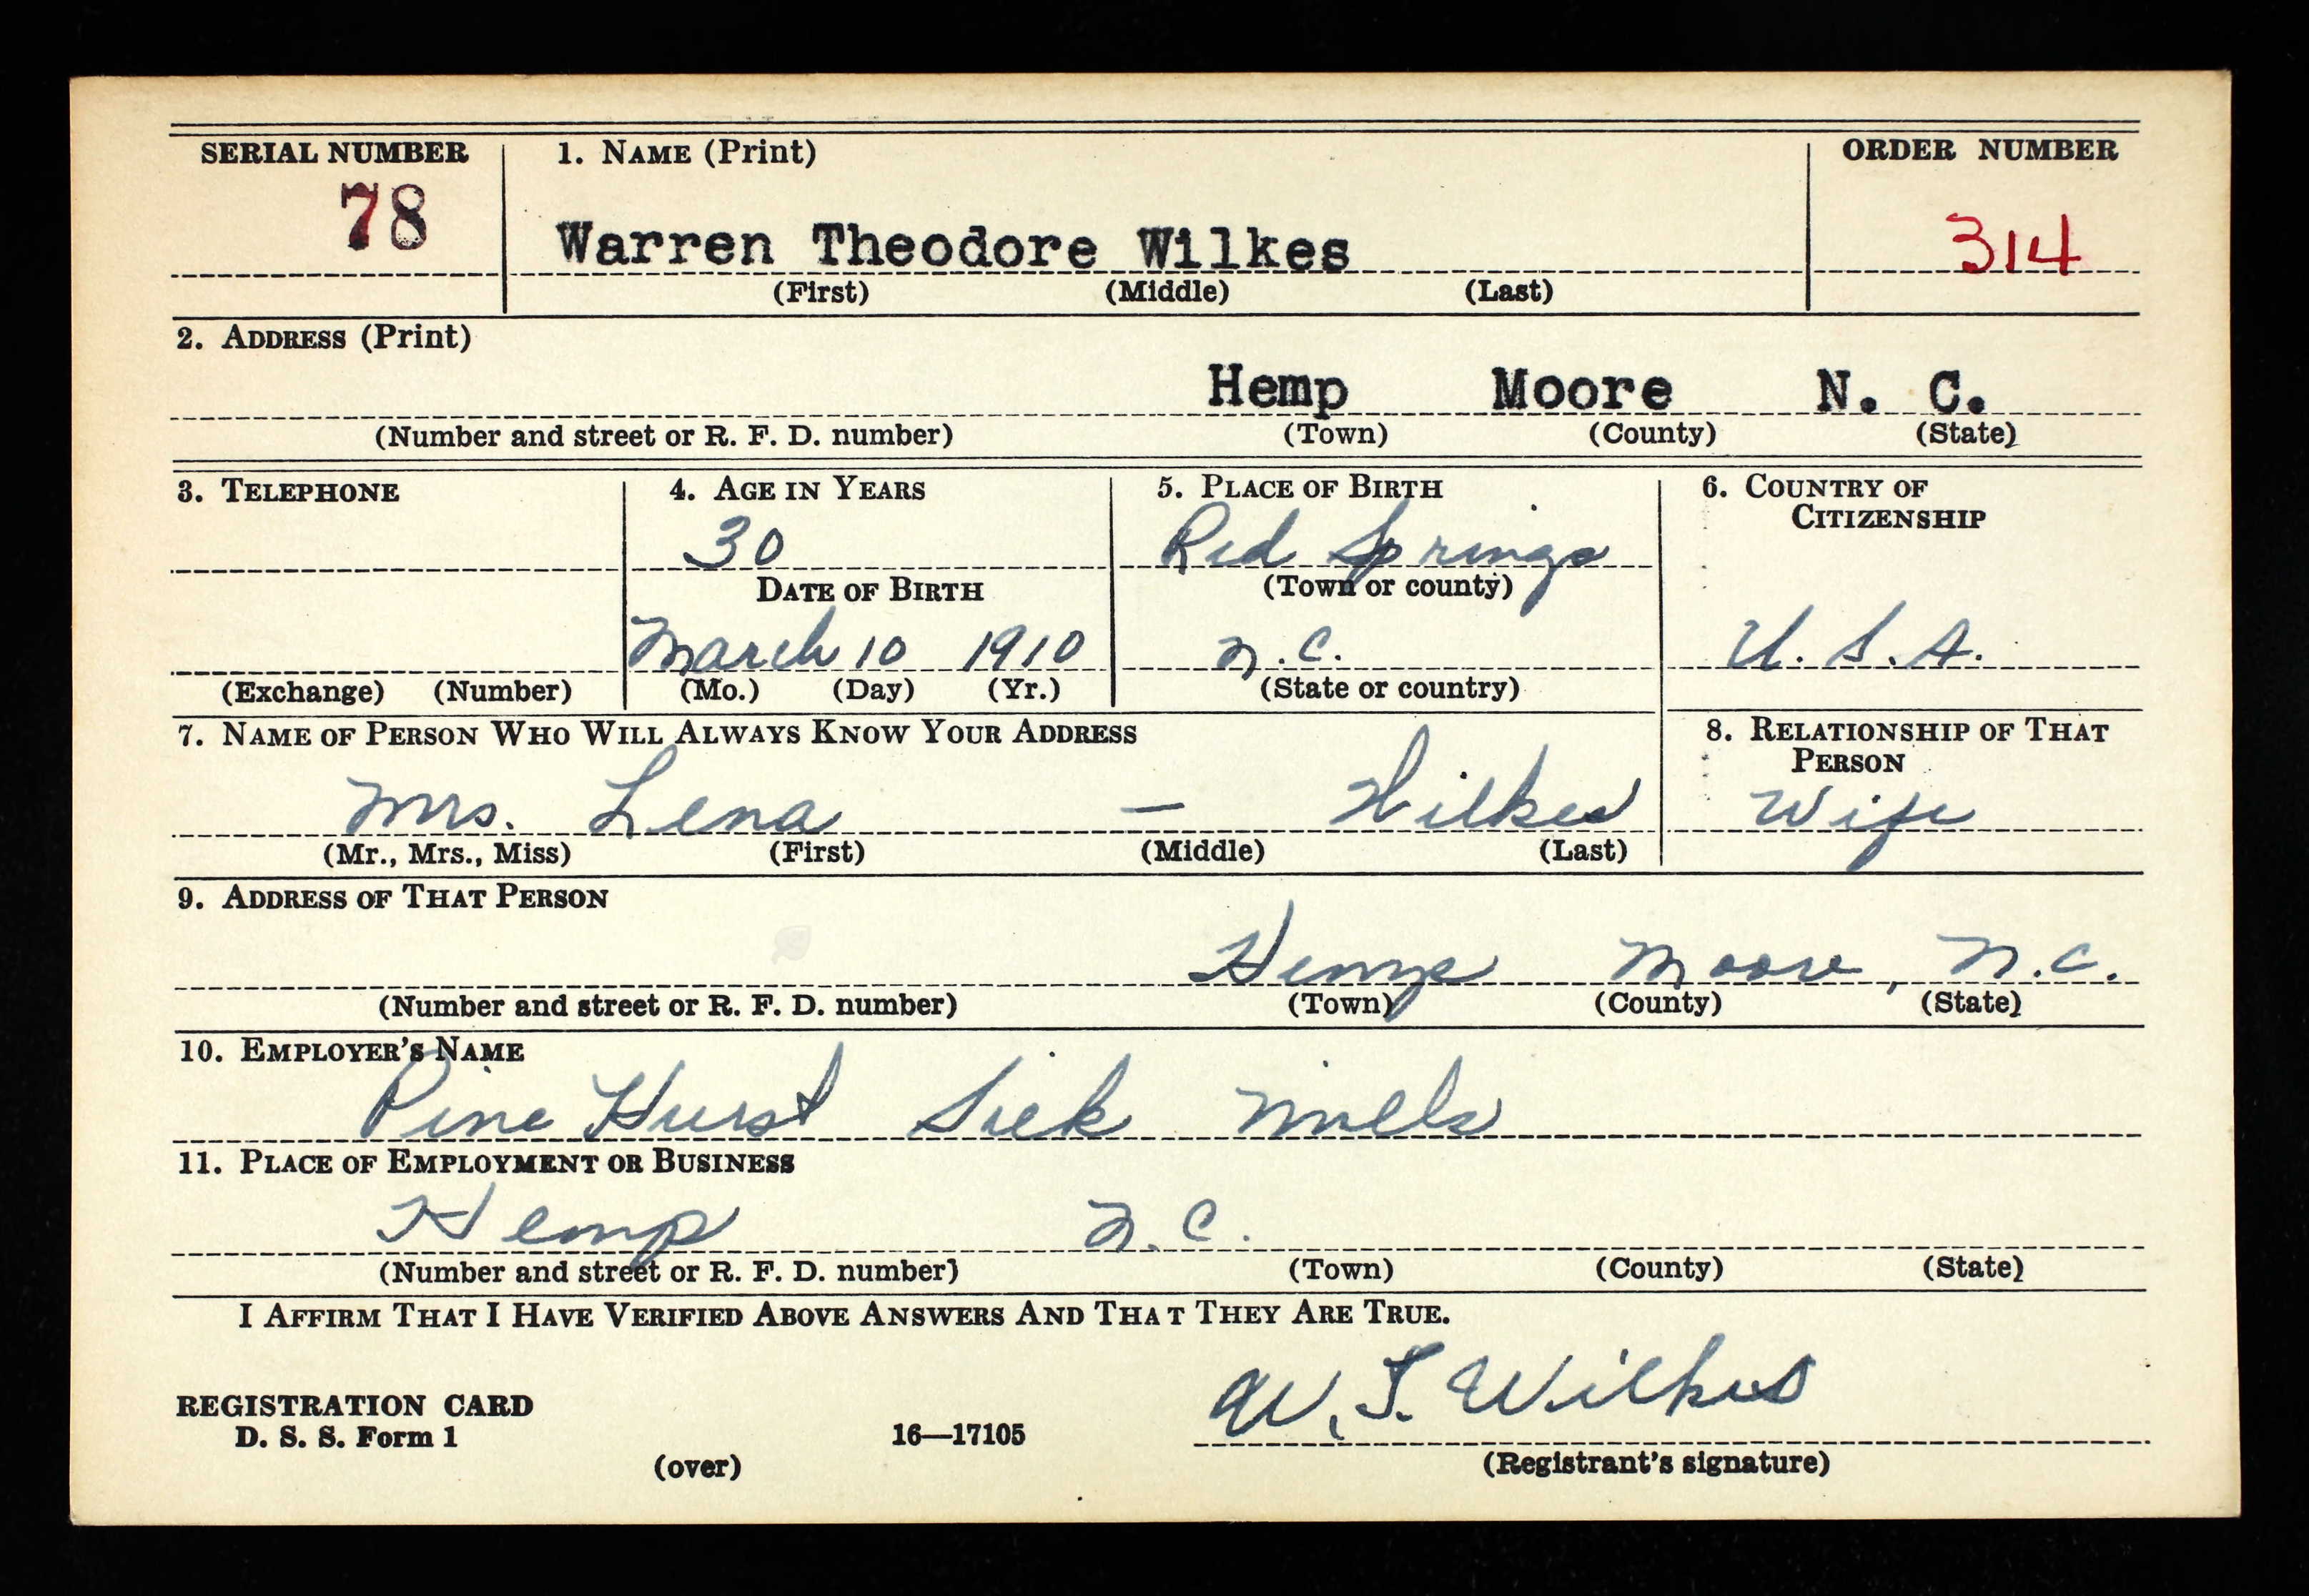 SERIAL NUMBER 1. NAME (Print) ORDER NUMBER
78 Warren Theodore Wilkes 314
(First) (Middle) (Last)
2. ADDRESS (Print)
Hemp Moore N. C.
(Number and street or R. F. D. number) (Town) (County) (State)
3. TELEPHONE 4. AGE IN YEARS 5. PLACE OF BIRTH 6. COUNTRY OF
CITIZENSHIP
30 Red Springs
DATE OF BIRTH (Town or county)
March 10 1910 N.C. U.S.A.
(Exchange) (Number) (Mo.) (Day) (Yr.) (State or country)
7. NAME OF PERSON WHO WILL ALWAYS KNOW YOUR ADDRESS 8. RELATIONSHIP OF THAT
PERSON
Mrs. Lena — Wilkes Wife
(Mr., Mrs., Miss) (First) (Middle) (Last)
9. ADDRESS OF THAT PERSON
Hemp Moore, N.C.
(Number and street or R. F. D. number) (Town) (County) (State)
10. EMPLOYER'S NAME
Pine Hurst Silk Mills
11. PLACE OF EMPLOYMENT OR BUSINESS
Hemp N.C.
(Number and street or R. F. D. number) (Town) (County) (State)
I AFFIRM THAT I HAVE VERIFIED ABOVE ANSWERS AND THAT THEY ARE TRUE.
W. T. Wilkes
REGISTRATION CARD
D. S. S. Form 1 16—17105
(over) (Registrant's signature)